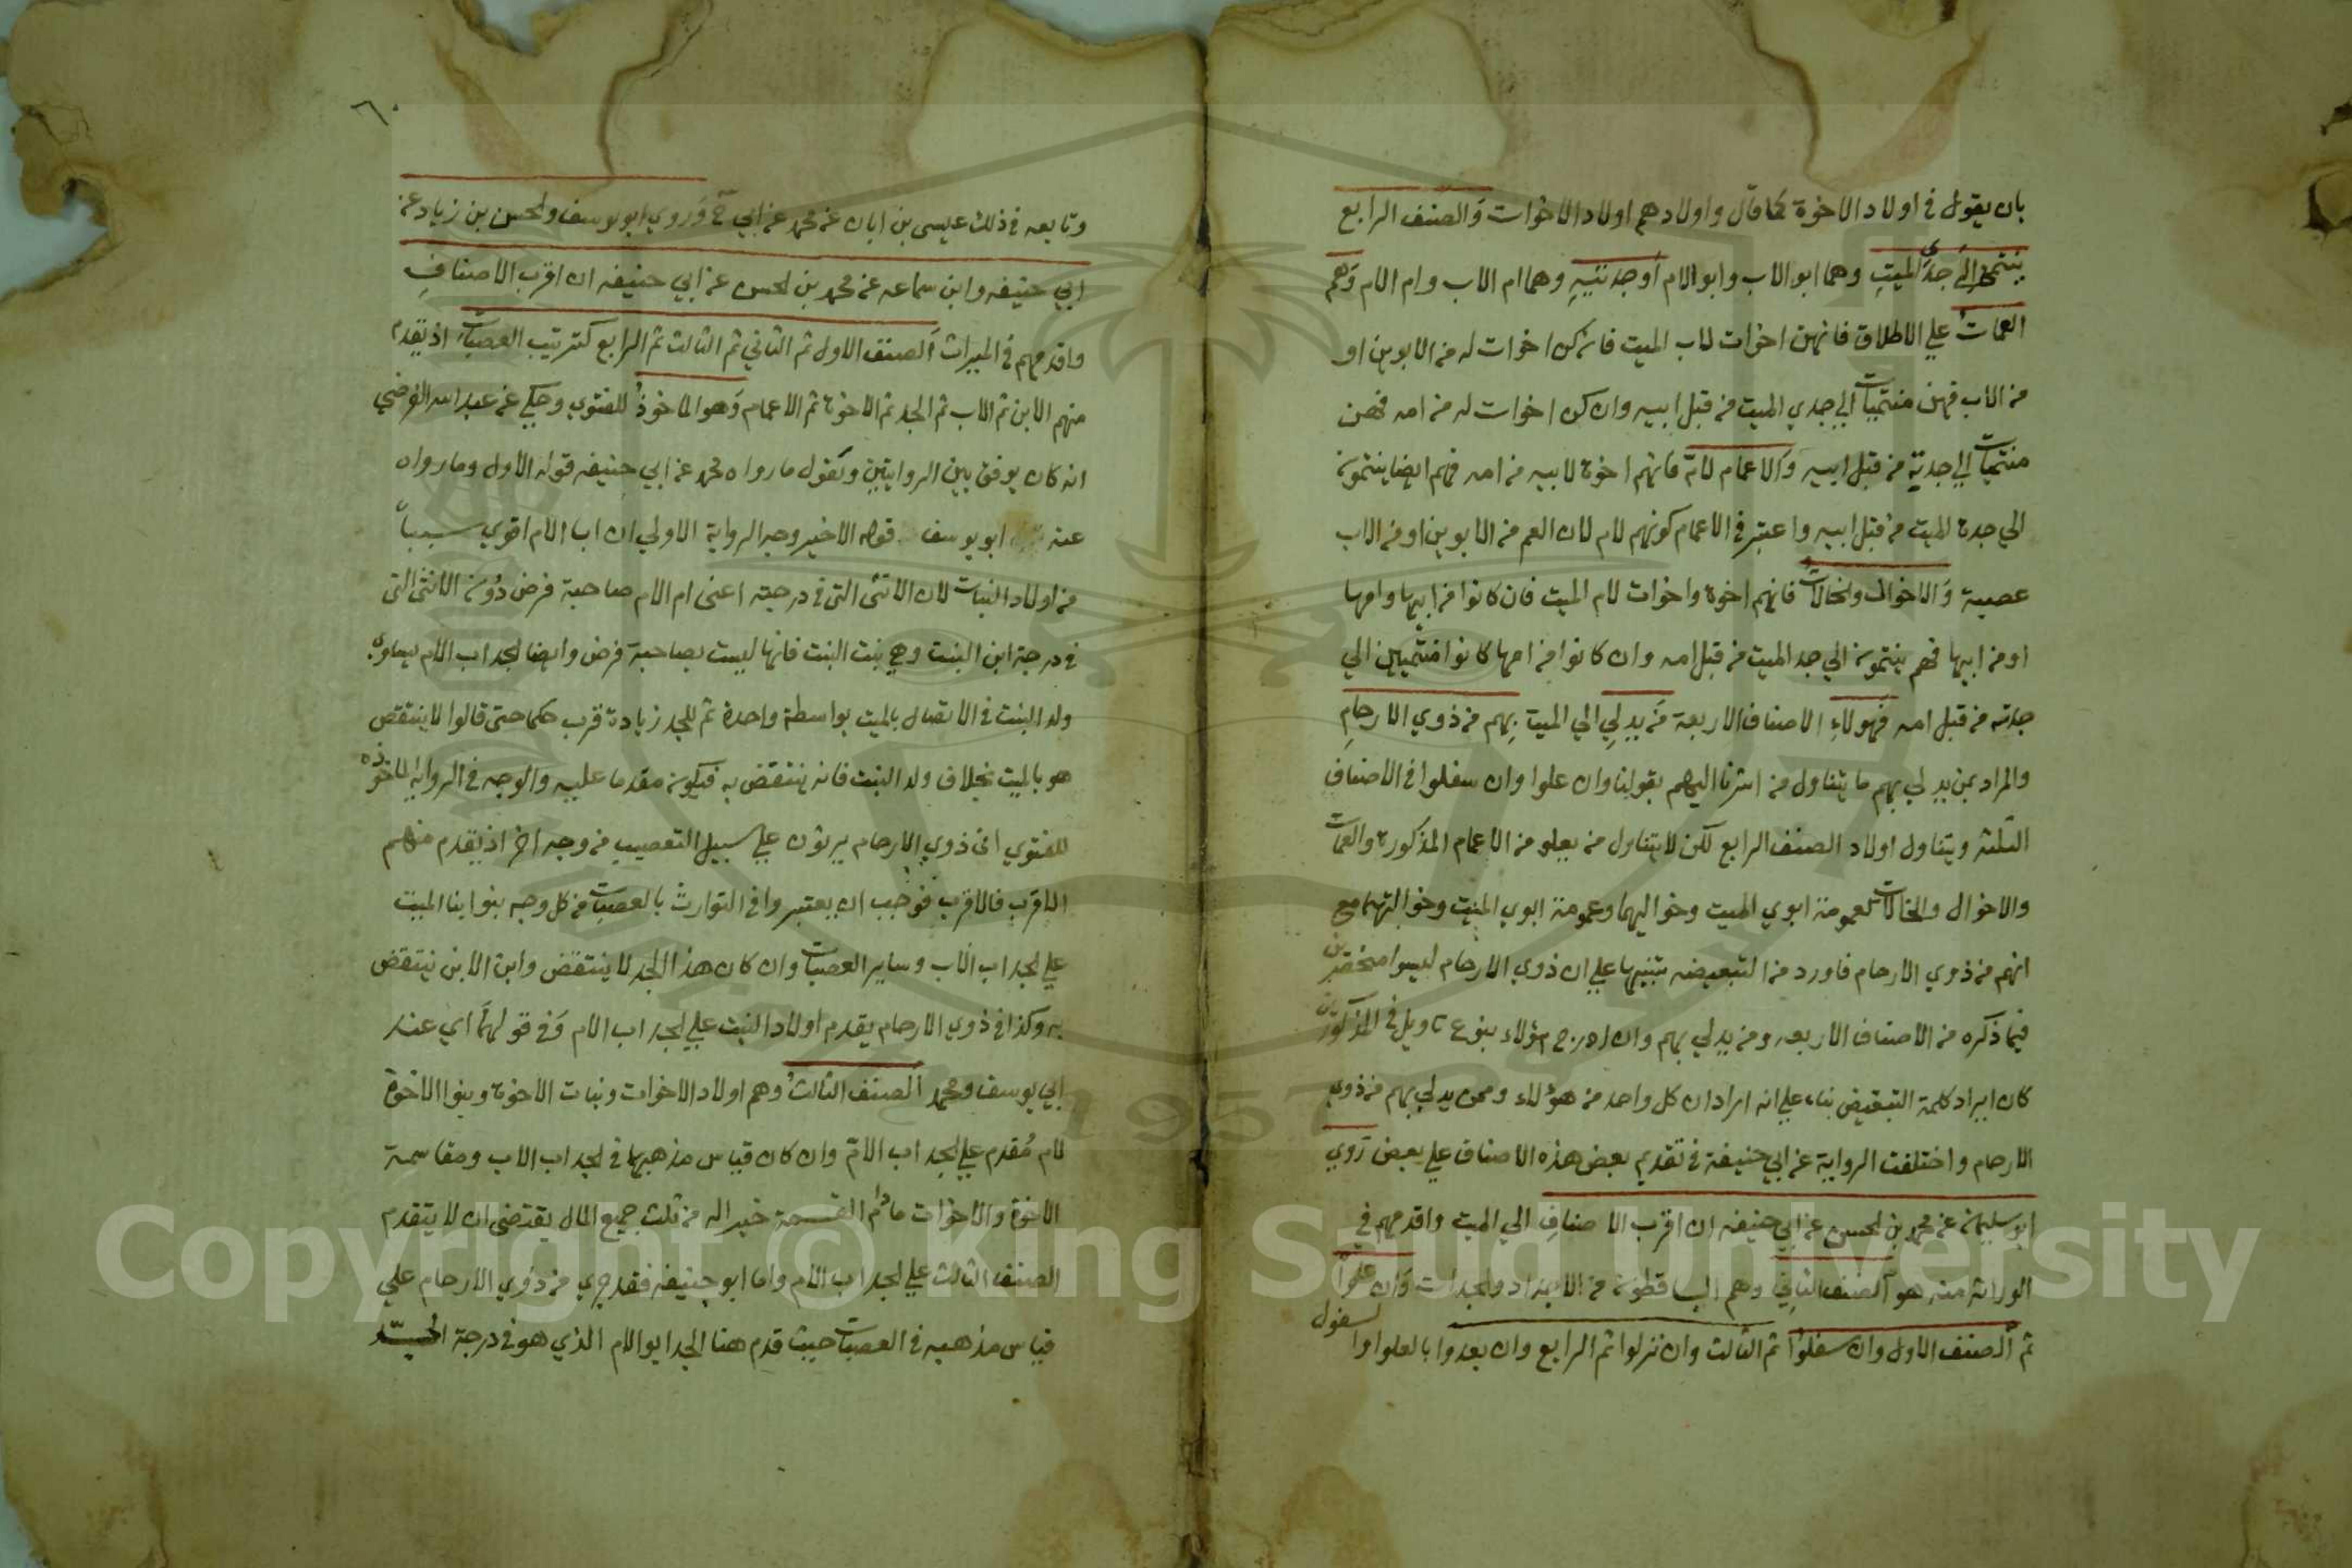 بان يقول في اولاد الاخوة كما قال واولادهم اولاد الاخوات والصنف الرابع
ينتمي الي جدي الميت وهما ابو الاب وابو الام اوجدتيه وهما ام الاب وام الام وهم
العمات علي الاطلاق فانهن اخوات لاب الميت فان كن اخوات له من الابوين او
من الاب فهن منتميات الي جدي الميت من قبل ابيه وان كن اخوات له من امه فهن
منتميات الي جدته من قبل ابيه والاعمام لام فانهم اخوة لابيه من امه فهم ايضا ينتمون
الي جدة الميت من قبل ابيه واعتبر في الاعمام كونهم لام لان العم من الابوين او من الاب
عصبة والاخوال والخالات فانهم اخوة واخوات لام الميت فان كانوا من ابيها وامها
او من ابيها فهم ينتمون الي جد الميت من قبل امه وان كانوا من امها كانوا منتميين الي
جدته من قبل امه فهولاء الاصناف الاربعة من يدلي الي الميت بهم من ذوي الارحام
والمراد بمن يدلي بهم ما يتناول من اشرنا اليهم بقولنا وان علوا وان سفلوا في الاصناف
الثلثه ويتناول اولاد الصنف الرابع لكن لا يتناول من يعلو من الاعمام المذكورة والعمات
والاخوال والخالات كعمومة ابوي الميت وخواليهما وعمومة ابوي ابوي الميت وخوالتهما مع
انهم من ذوي الارحام فاورد من التبعيضيه تنبيها علي ان ذوي الارحام ليسوا منحصرين
فيما ذكره من الاصناف الاربعه ومن يدلي بهم وان ادرج هؤلاء بنوع تاويل في المذكورين
كان ايراد كلمة التبعيض بناء علي انه اراد ان كل واحد من هؤلاء وممن يدلي بهم من ذوي
الارحام واختلفت الرواية عن ابي حنيفة في تقديم بعض هذه الاصناف علي بعض روي
ابو سليمان عن محمد بن الحسن عن ابي حنيفه ان اقرب الاصناف الي الميت واقدمهم في
الوراثة منه هو الصنف الثاني وهم الساقطون من الاجداد والجدات وان علوا
ثم الصنف الاول وان سفلوا ثم الثالث وان نزلوا ثم الرابع وان بعدوا بالعلو او السفول
٦٠
وتابعه في ذلك عيسى بن ابان عن محمد عن ابي ح وروي ابو يوسف والحسن بن زياد عن
ابي حنيفه وابن سماعه عن محمد بن الحسن عن ابي حنيفه ان اقرب الاصناف
واقدمهم في الميراث الصنف الاول ثم الثاني ثم الثالث ثم الرابع كترتيب العصبات اذ يقدم
منهم الابن ثم الاب ثم الجد ثم الاخوة ثم الاعمام وهو الماخوذ للفتوي وحكي عن عبد الله الفرضي
انه كان يوفق بين الروايتين ويقول ما رواه محمد عن ابي حنيفه قوله الاول وما رواه
عنه ابو يوسف قوله الاخير وجه الرواية الاولي ان ابا الام اقوي سببا
من اولاد البنات لان الانثى التي في درجته اعني ام الام صاحبة فرض دون الانثى التي
في درجة ابن البنت وهي بنت البنت فانها ليست بصاحبة فرض وايضا الجد اب الام يساوي
ولد البنت في الاتصال بالميت بواسطة واحدة ثم للجد زيادة قرب حكما حتى قالوا لا ينتقص
هو بالميت بخلاف ولد البنت فانه ينتقص به فيكون مقدما عليه والوجه في الرواية الماخوذه
للفتوي ان ذوي الارحام يرثون علي سبيل التعصيب من وجه اخر اذ يقدم منهم
الاقرب فالاقرب فوجب ان يعتبروا في التوارث بالعصبات من كل وجه بنو ابنا الميت
علي الجد اب الاب وساير العصبات وان كان هذا الجد لا ينتقص وابن الابن ينتقص
به وكذا في ذوي الارحام يقدم اولاد البنت علي الجد اب الام وفي قولهما اي عند
ابي يوسف ومحمد الصنف الثالث وهم اولاد الاخوات وبنات الاخوة وبنوا الاخوة
لام مقدم علي الجد اب الام وان كان قياس مذهبهما في الجد اب الاب ومقاسمة
الاخوة والاخوات مادام القسمة خيرا له من ثلث جميع المال يقتضي ان لا يتقدم
الصنف الثالث علي الجد اب الام واما ابو حنيفه فقد جري في ذوي الارحام علي
قياس مذهبه في العصبات حيث قدم هنا الجد ابو الام الذي هو في درجة الجد